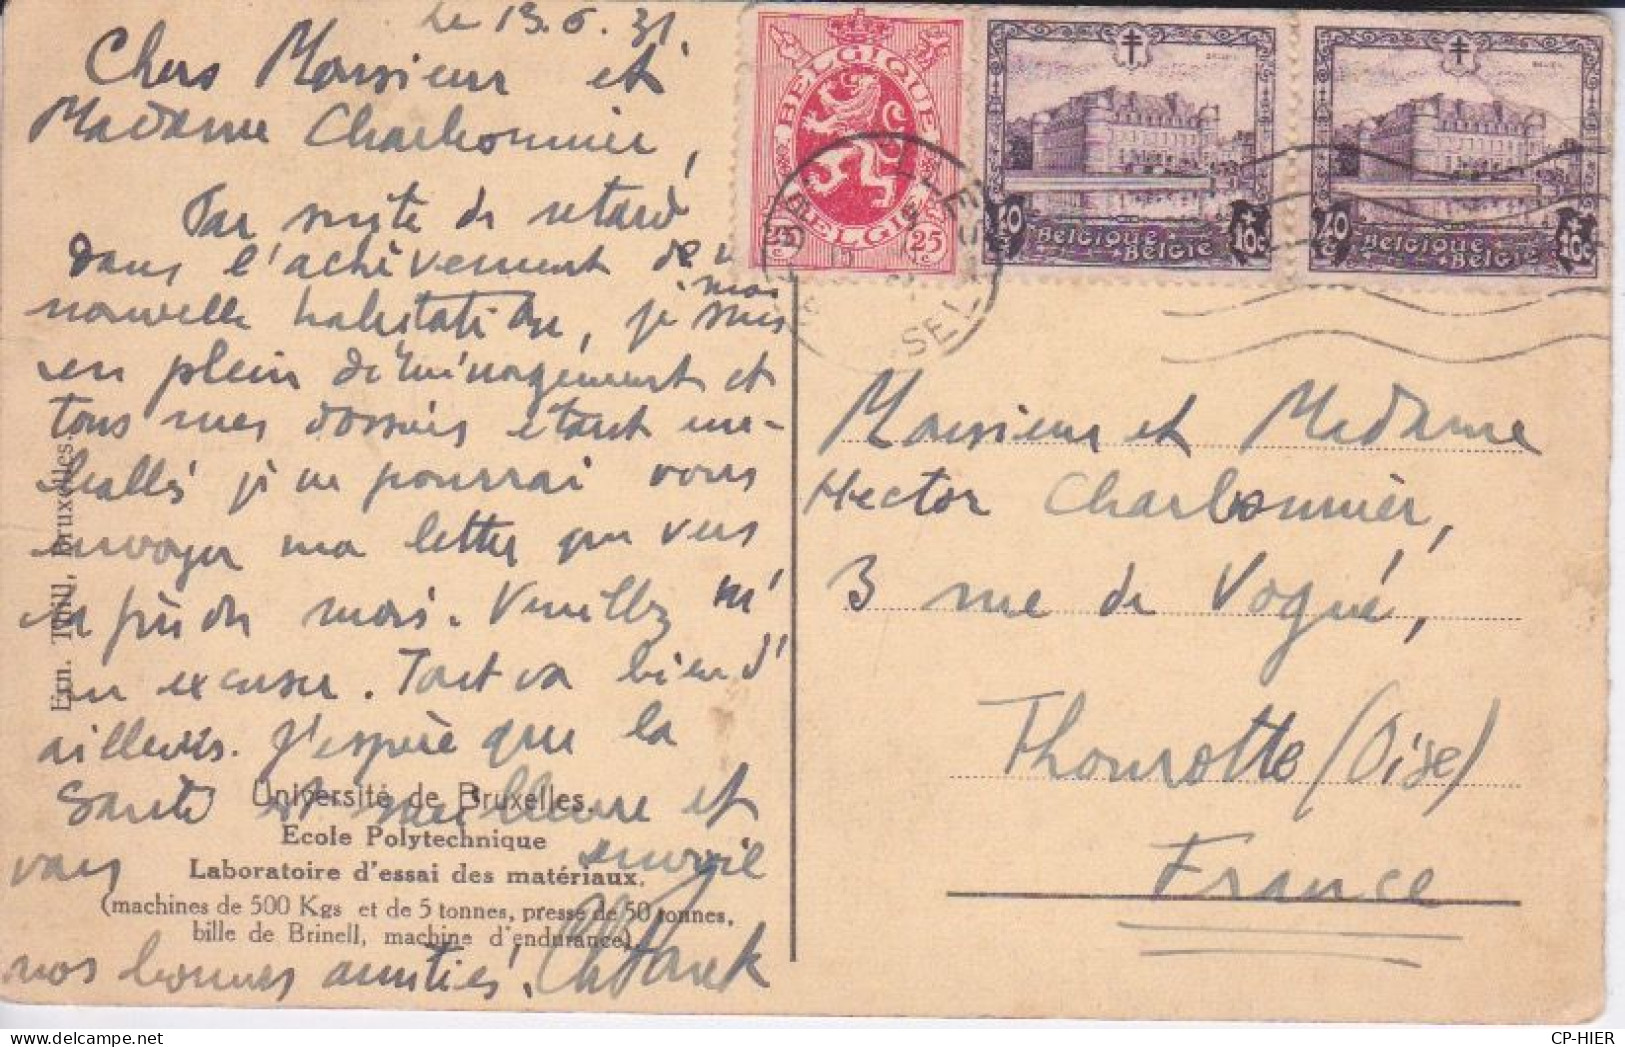 Le 13.6.31.
Chers Monsieur et
Madame Charbonnier,
Par suite de retard
dans l'achèvement de
nouvelle habitation, je suis
en plein déménagement et
tous mes dossiers étant em-
ballés je ne pourrai vous
envoyer ma lettre que vers
la fin du mois. Veuillez m'
en excuser. Tout va bien d'
ailleurs. J'espère que la
Santé est meilleure et
vous envoie
nos bonnes amitiés.
Ern. Thill, Bruxelles.
Université de Bruxelles.
Ecole Polytechnique
Laboratoire d'essai des matériaux.
(machines de 500 Kgs et de 5 tonnes, presse de 50 tonnes,
bille de Brinell, machine d'endurance).
BELGIQUE
25 c
BELGIE
40 c
BELGIQUE + BELGIË
+ 10 c
40 c
BELGIQUE + BELGIË
+ 10 c
Monsieur et Madame
Hector Charbonnier,
3 rue de Vogué,
Thourotte (Oise)
France
CP-HIER